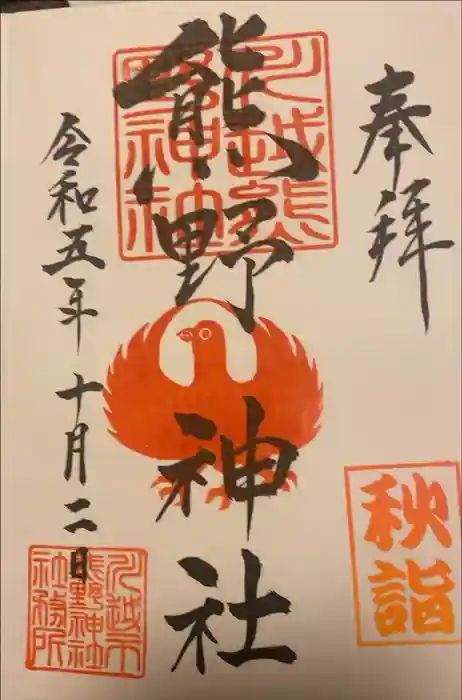 奉拝
秋詣
熊野神社
川越熊野神社
令和五年十月二日
川越市
熊野神社
社務所